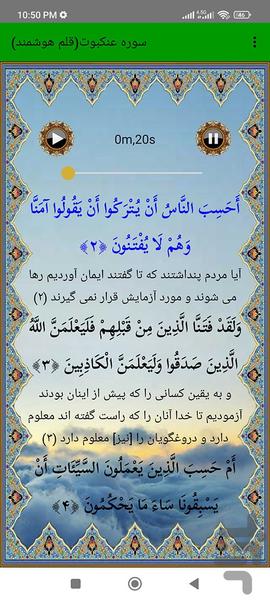 10:50 PM
سوره عنکبوت(قلم هوشمند)
0m,20s
أَحَسِبَ النَّاسُ أَنْ يُتْرَكُوا أَنْ يَقُولُوا آمَنَّا
وَهُمْ لَا يُفْتَنُونَ ﴿۲﴾
آیا مردم پنداشتند که تا گفتند ایمان آوردیم رها
می شوند و مورد آزمایش قرار نمی گیرند (۲)
وَلَقَدْ فَتَنَّا الَّذِينَ مِنْ قَبْلِهِمْ فَلَيَعْلَمَنَّ اللَّهُ
الَّذِينَ صَدَقُوا وَلَيَعْلَمَنَّ الْكَاذِبِينَ ﴿۳﴾
و به یقین کسانی را که پیش از اینان بودند
آزمودیم تا خدا آنان را که راست گفته اند معلوم
دارد و دروغگویان را [نیز] معلوم دارد (۳)
أَمْ حَسِبَ الَّذِينَ يَعْمَلُونَ السَّيِّئَاتِ أَنْ
يَسْبِقُونَا سَاءَ مَا يَحْكُمُونَ ﴿۴﴾